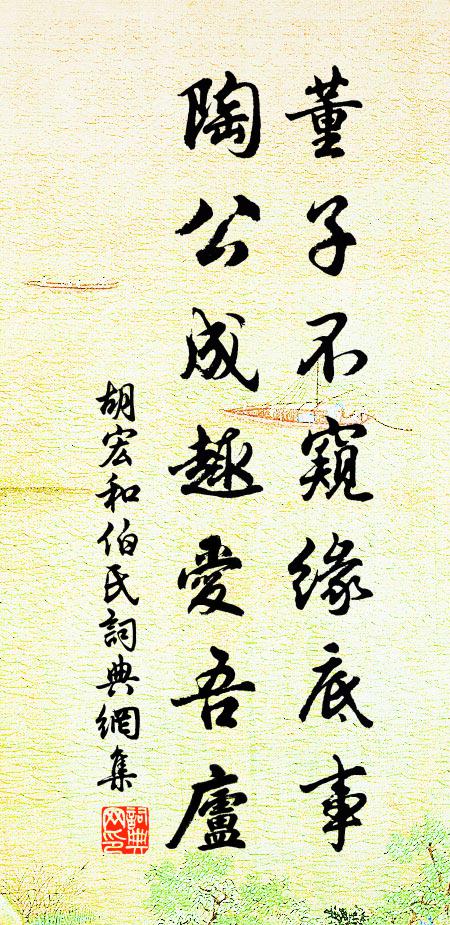 董子不窺緣底事
陶公成趣愛吾廬
胡宏和伯氏詞典網集
詞典網印